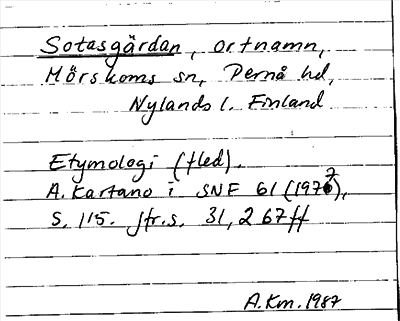 Sotasgårdan, ortnamn,
Mörskoms sn, Pernå hd,
Nylands l. Finland
Etymologi (fled).
A. Kartano i SNF 61 (1977),
s. 115. Jfr. s. 31, 267 ff
A.Km. 1987